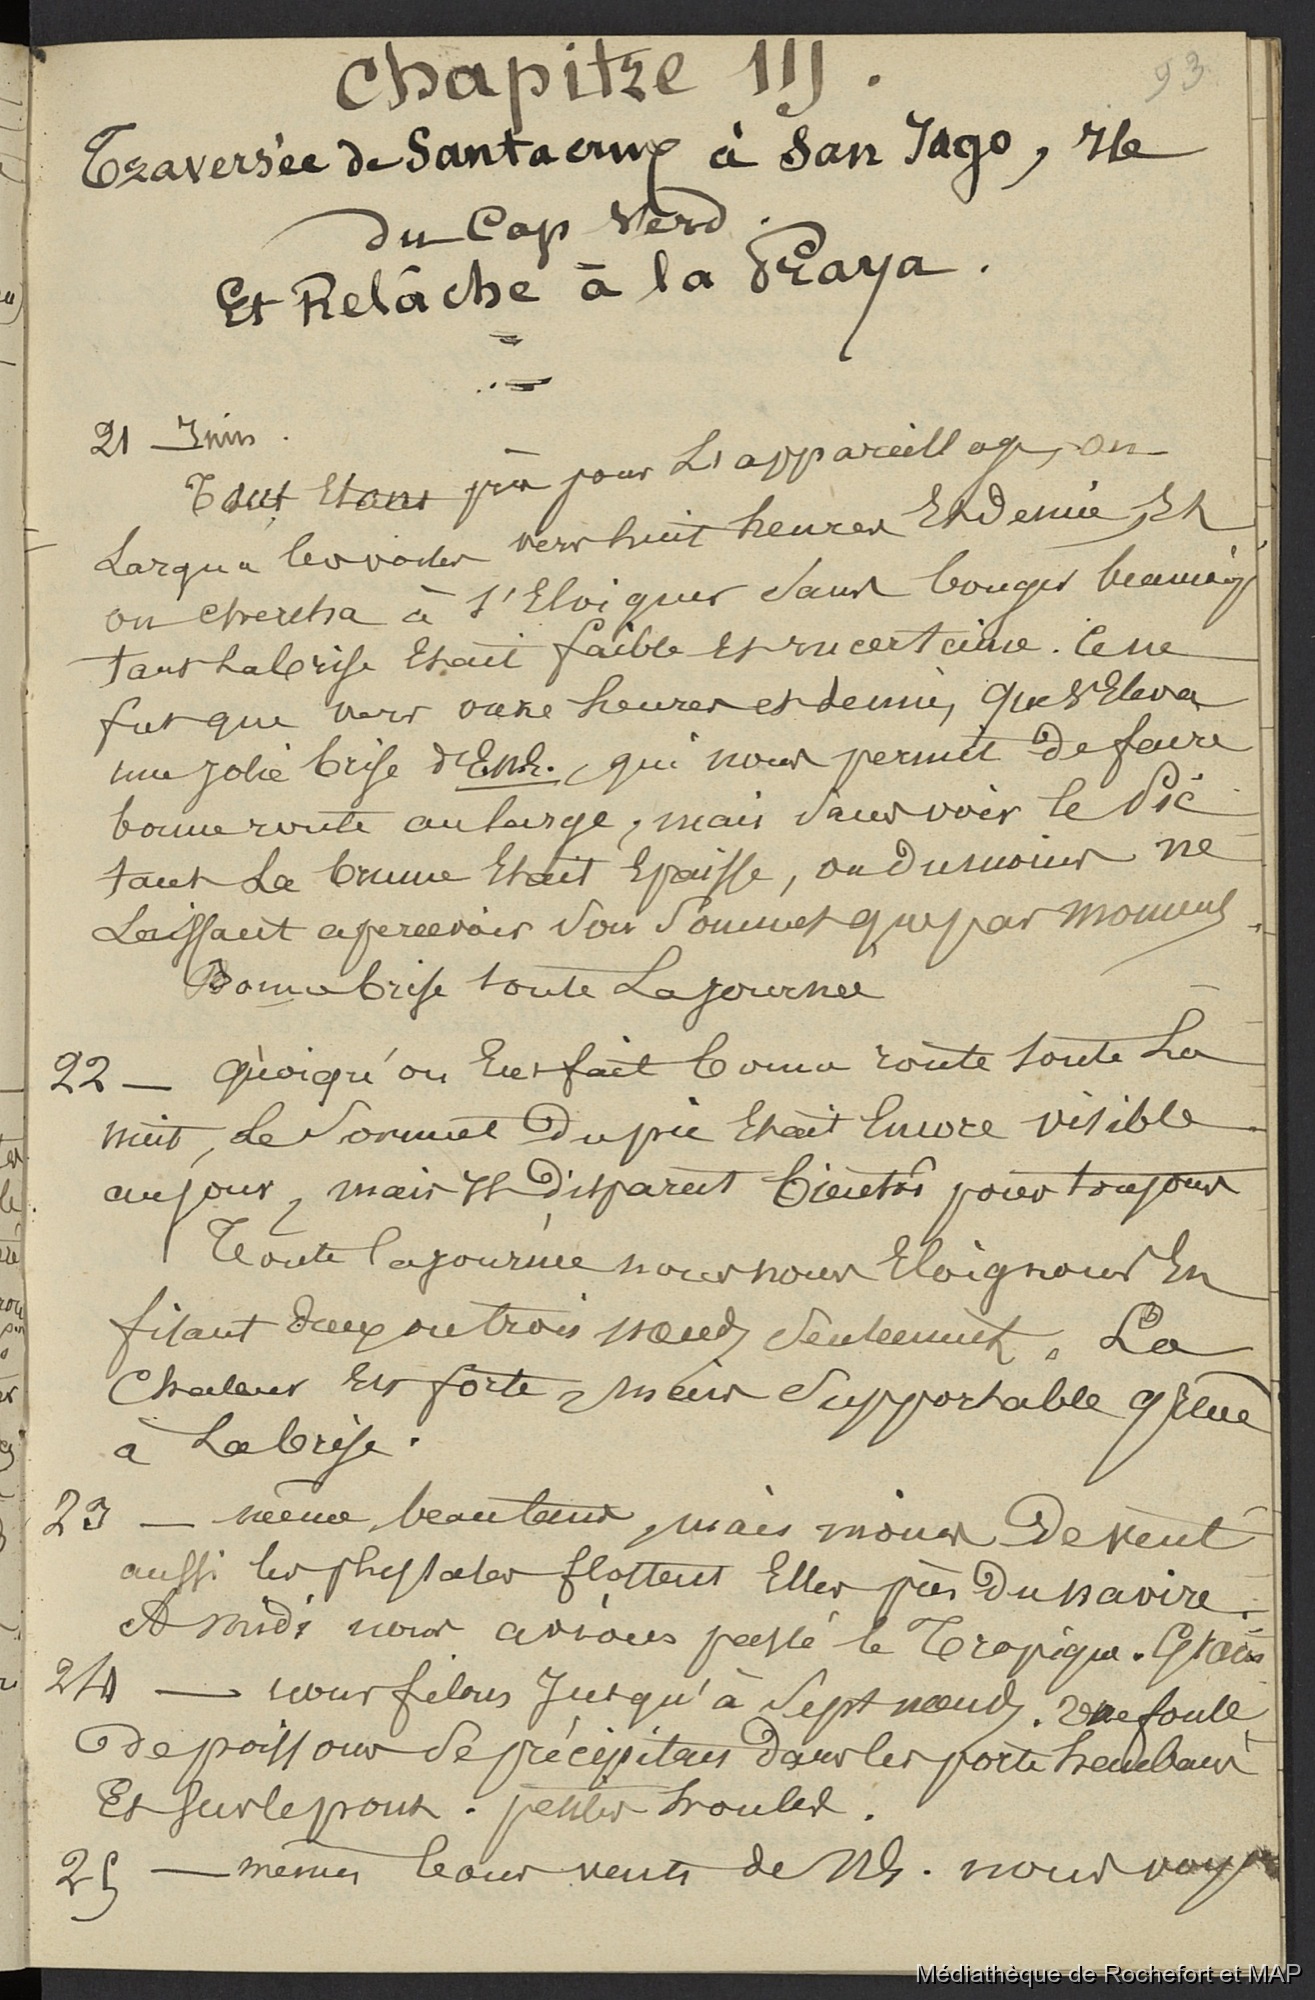 93
Chapitre III.
Traversée de Santacruz à San Iago, Ile
du Cap Verd.
Et Relâche à la Praya.
21 Juin.
Tout Etant prèt pour L'appareillage, on
Largua les voiles vers huit heures Et demie, Et
on chercha à s'Eloigner sans bouger beaucoup
tant La brise Etait faible et incertaine. Ce ne
fut que vers onze heures et demie, que s'Eleva
une jolie brise d'Ene., qui nous permit de faire
bonne route au large, mais sans voir le Pic
tant La brume Etait Epaisse, ou du moins ne
Laissant apercevoir son Sommet que par moments.
Bonne brise toute La journée
22 — quoiqu'on Eut fait bonne route toute La
nuit, Le Sommet du pic Etait Encore visible
au jour, mais Il disparut bientôt pour toujours
Toute la journée nous nous Eloignons En
filant deux ou trois noeuds Seulement. La
Chaleur Est forte, mais Supportable grâce
à La brise.
23 — même beau tems, mais moins de vent
aussi les physales flottent Elles près du navire.
A midi nous avions passé le Tropique.
24 — nous filons Jusqu'à Sept noeuds. Une foule
de poissons Se précipitent dans les porte haubans
Et Sur le pont. petites houles.
25 — mêmes bons vents de Ne. nous
Médiathèque de Rochefort et MAP